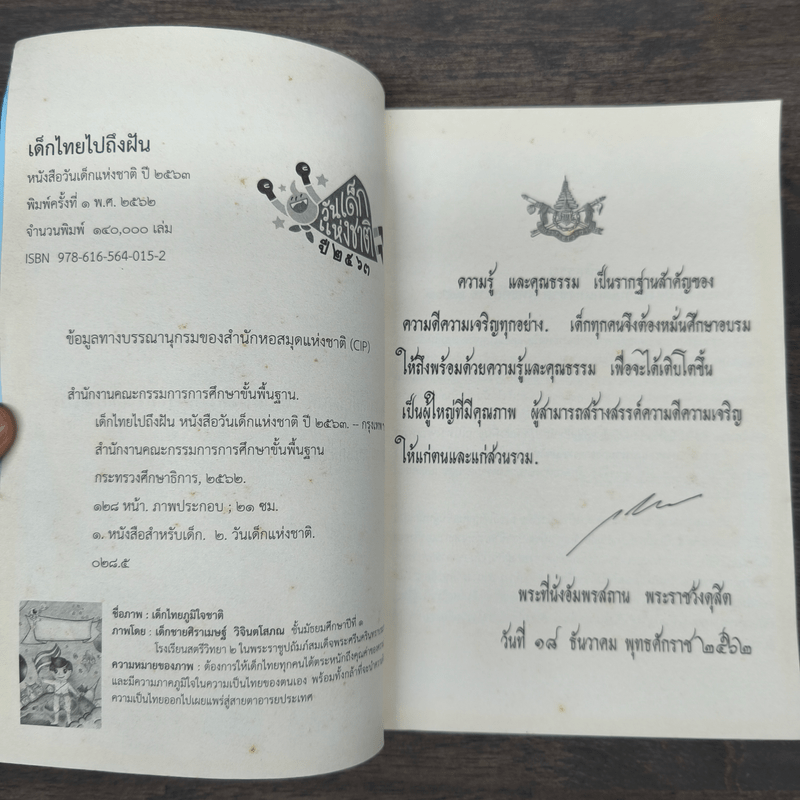 เด็กไทยไปถึงฝัน
หนังสือวันเด็กแห่งชาติ ปี ๒๕๖๓
พิมพ์ครั้งที่ ๑ พ.ศ. ๒๕๖๒
จำนวนพิมพ์ ๑๔๐,๐๐๐ เล่ม
ISBN 978-616-564-015-2
วันเด็ก
แห่งชาติ
ปี ๒๕๖๓
ข้อมูลทางบรรณานุกรมของสำนักหอสมุดแห่งชาติ (CIP)
สำนักงานคณะกรรมการการศึกษาขั้นพื้นฐาน.
เด็กไทยไปถึงฝัน หนังสือวันเด็กแห่งชาติ ปี ๒๕๖๓. -- กรุงเทพฯ
สำนักงานคณะกรรมการการศึกษาขั้นพื้นฐาน
กระทรวงศึกษาธิการ, ๒๕๖๒.
๑๒๘ หน้า. ภาพประกอบ ; ๒๑ ซม.
๑. หนังสือสำหรับเด็ก. ๒. วันเด็กแห่งชาติ.
๐๒๘.๕
ชื่อภาพ : เด็กไทยภูมิใจชาติ
ภาพโดย : เด็กชายศิราเมษฐ์ วิจินตโสภณ ชั้นมัธยมศึกษาปีที่ ๑
โรงเรียนสตรีวิทยา ๒ ในพระราชูปถัมภ์สมเด็จพระศรีนครินทรา
ความหมายของภาพ : ต้องการให้เด็กไทยทุกคนได้ตระหนักถึงคุณค่าของ
และมีความภาคภูมิใจในความเป็นไทยของตนเอง พร้อมทั้งกล้าที่จะนำ
ความเป็นไทยออกไปเผยแพร่สู่สายตาอารยประเทศ
ความรู้ และคุณธรรม เป็นรากฐานสำคัญของ
ความดีความเจริญทุกอย่าง. เด็กทุกคนจึงต้องหมั่นศึกษาอบรม
ให้ถึงพร้อมด้วยความรู้และคุณธรรม เพื่อจะได้เติบโตขึ้น
เป็นผู้ใหญ่ที่มีคุณภาพ ผู้สามารถสร้างสรรค์ความดีความเจริญ
ให้แก่ตนและแก่ส่วนรวม.
พระที่นั่งอัมพรสถาน พระราชวังดุสิต
วันที่ ๑๘ ธันวาคม พุทธศักราช ๒๕๖๒